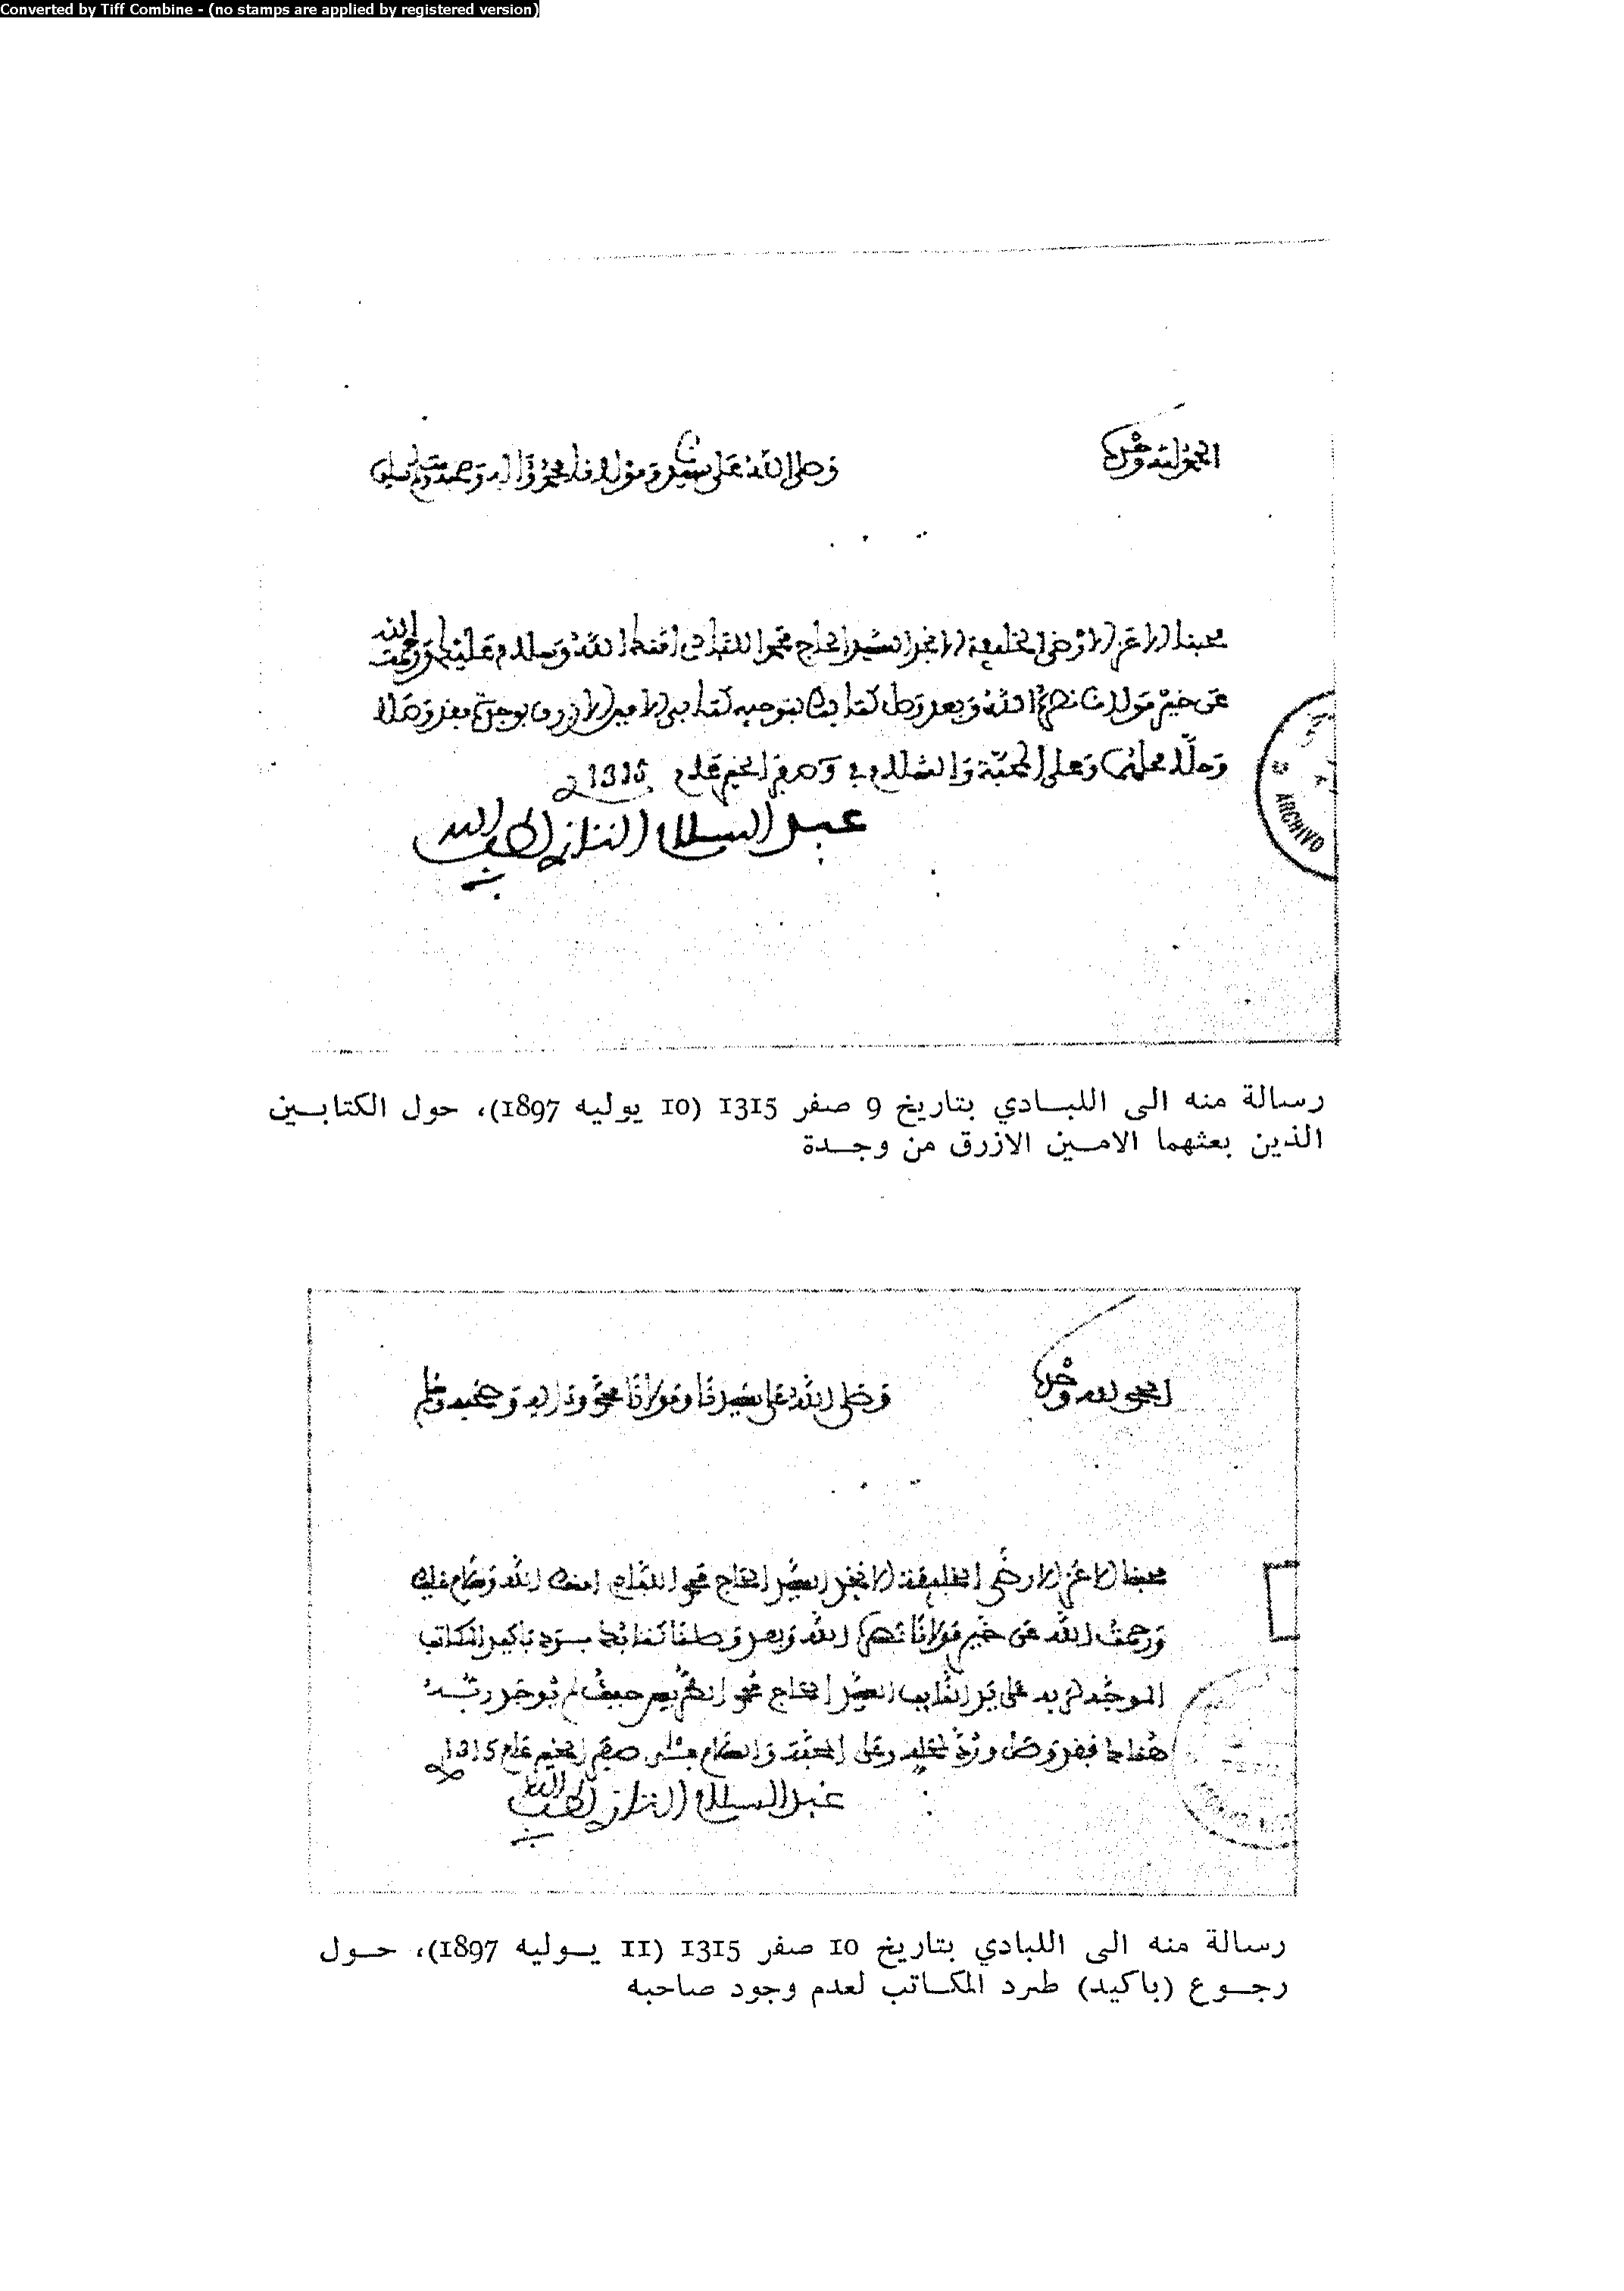 Converted by Tiff Combine - (no stamps are applied by registered version)
الحمد لله وحده
وصلى الله على سيدنا ومولانا محمد وآله وصحبه وسلم
محبنا الاعز الارضى الخليفة الانجد السيد الحاج محمد اللبادي امنك الله وسلام عليك ورحمت الله
عن خير مولانا نصره الله وبعد وصل كتابك بتوجيه كتابي الامين الازرق بوجدة فقد وصلا
وحلا محلهما وعلى المحبة والسلام في 9 صفر الخير عام 1315
عبد السلام التازي لطف الله
به
ARCHIVO
رسالة منه الى اللبادي بتاريخ 9 صفر 1315 (10 يوليه 1897)، حول الكتابين
الذين بعثهما الامين الازرق من وجدة
الحمد لله وحده
وصلى الله على سيدنا ومولانا محمد وآله وصحبه وسلم
محبنا الاعز الارضى الخليفة الانجد السيد الحاج محمد اللبادي امنك الله وسلام عليك
ورحمت الله عن خير مولانا نصره الله وبعد وصلنا كتابك برد باكيد المكاتب
الموجه لم يد على يد النايب السيد الحاج محمد حيث لم يوجد ربه
هناك فقد وصل ورد لمحله وعلى المحبة والسلام صفر الخير عام 1315
عبد السلام التازي لطف الله
به
رسالة منه الى اللبادي بتاريخ 10 صفر 1315 (11 يوليه 1897)، حول
رجوع (باكيد) طرد المكاتب لعدم وجود صاحبه